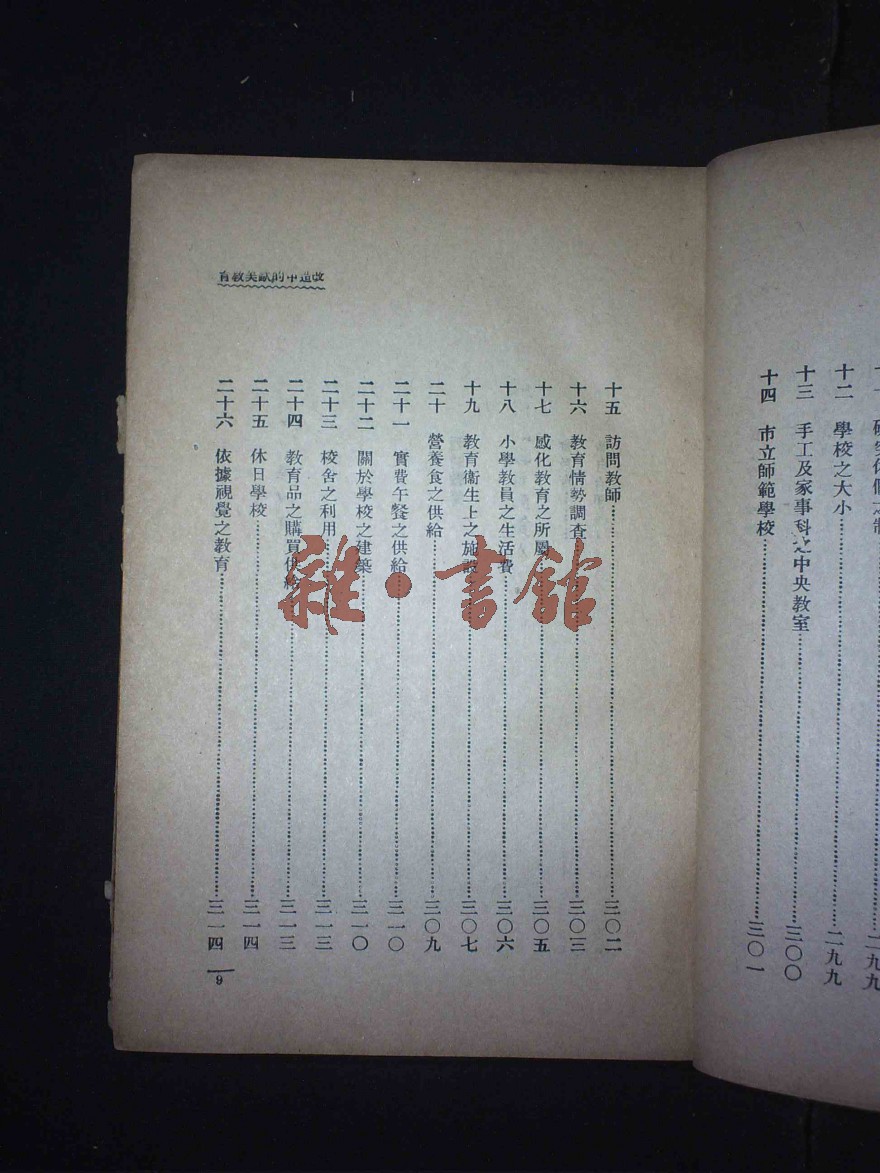 十二 學校之大小 二九九
十三 手工及家事科之中央教室 三〇〇
十四 市立師範學校 三〇一
改造中的歐美教育
十五 訪問教師 三〇二
十六 教育情勢調查 三〇三
十七 感化教育之所屬 三〇五
十八 小學教員之生活費 三〇六
十九 教育衞生上之施設 三〇七
二十 營養食之供給 三〇九
二十一 實費午餐之供給 三一〇
二十二 關於學校之建築 三一〇
二十三 校舍之利用 三一三
二十四 教育品之購買供給 三一三
二十五 休日學校 三一四
二十六 依據視覺之教育 三一四
9
雜·書館